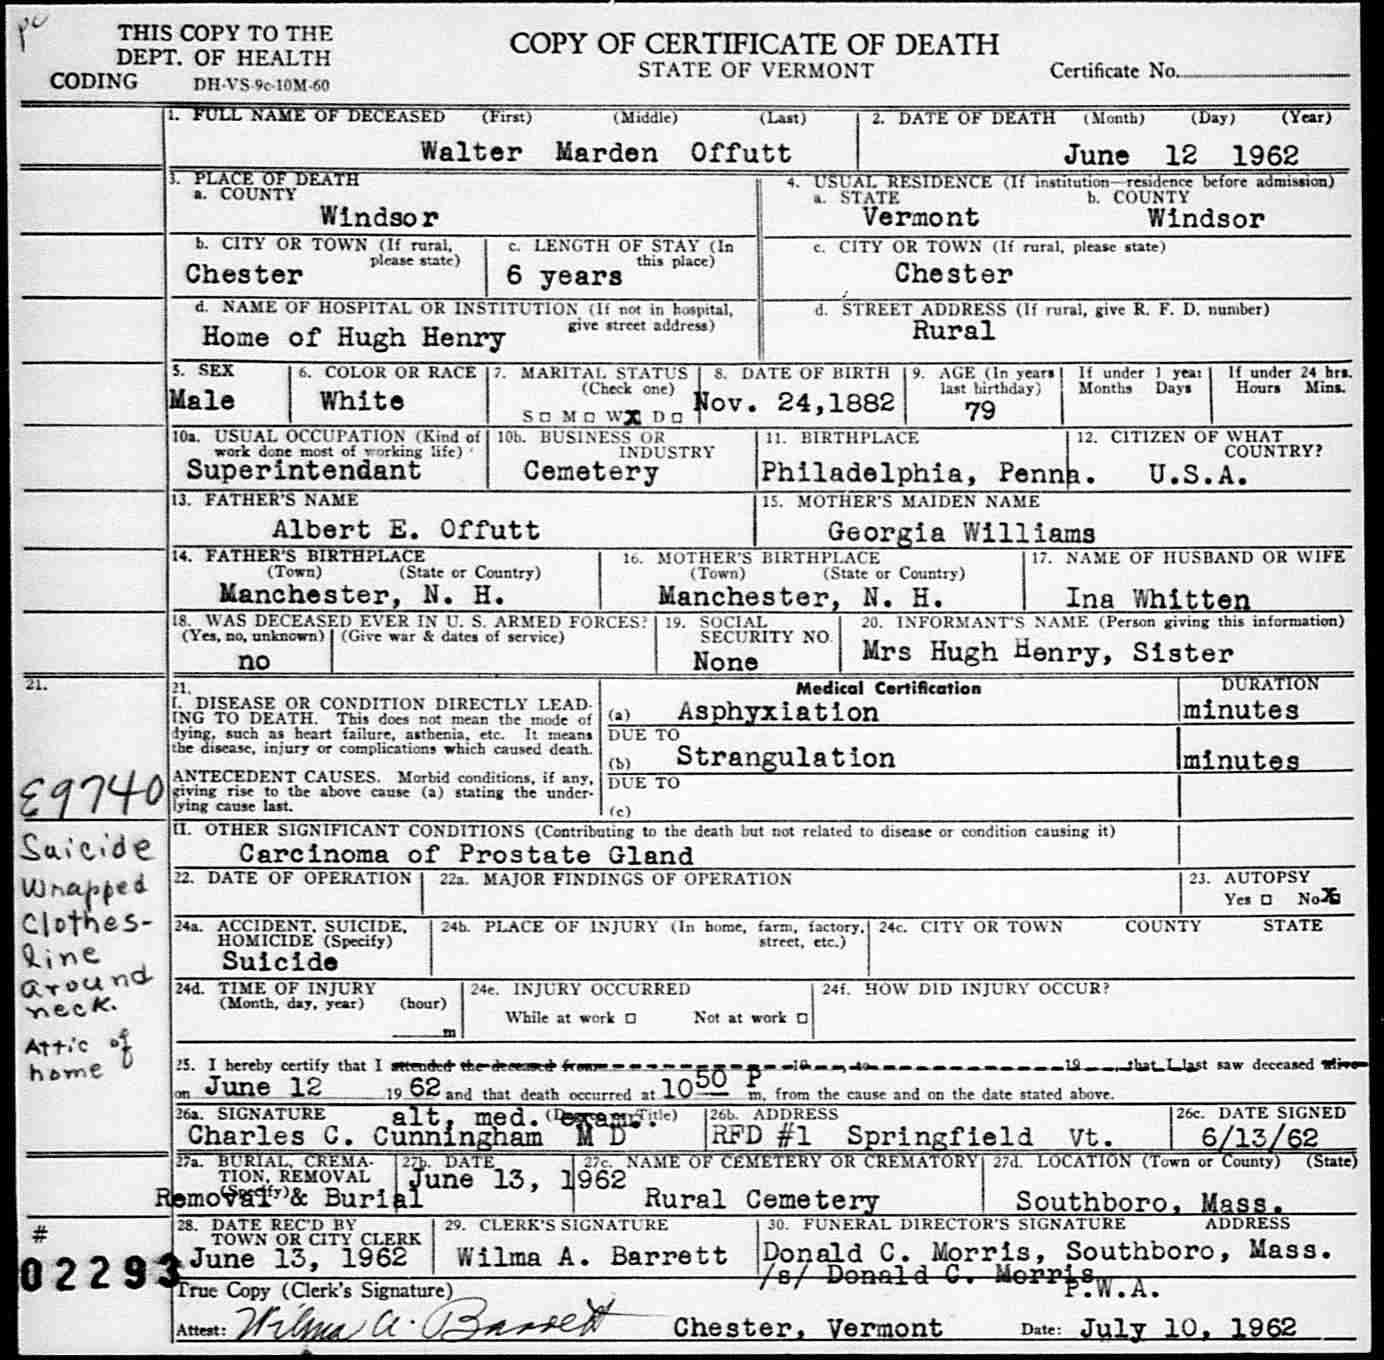 THIS COPY TO THE
DEPT. OF HEALTH
CODING DH-VS-9c-10M-60
COPY OF CERTIFICATE OF DEATH
STATE OF VERMONT
Certificate No.
1. FULL NAME OF DECEASED (First) (Middle) (Last)
Walter Marden Offutt
2. DATE OF DEATH (Month) (Day) (Year)
June 12 1962
3. PLACE OF DEATH
a. COUNTY
Windsor
4. USUAL RESIDENCE (If institution—residence before admission)
a. STATE b. COUNTY
Vermont Windsor
b. CITY OR TOWN (If rural,
please state)
Chester
c. LENGTH OF STAY (In
this place)
6 years
c. CITY OR TOWN (If rural, please state)
Chester
d. NAME OF HOSPITAL OR INSTITUTION (If not in hospital,
give street address)
Home of Hugh Henry
d. STREET ADDRESS (If rural, give R. F. D. number)
Rural
5. SEX
Male
6. COLOR OR RACE
White
7. MARITAL STATUS
(Check one)
S □ M □ W X D □
8. DATE OF BIRTH
Nov. 24,1882
9. AGE (In years
last birthday)
79
If under 1 year
Months Days
If under 24 hrs.
Hours Mins.
10a. USUAL OCCUPATION (Kind of
work done most of working life)
Superintendant
10b. BUSINESS OR
INDUSTRY
Cemetery
11. BIRTHPLACE
Philadelphia, Penna.
12. CITIZEN OF WHAT
COUNTRY?
U.S.A.
13. FATHER'S NAME
Albert E. Offutt
15. MOTHER'S MAIDEN NAME
Georgia Williams
14. FATHER'S BIRTHPLACE
(Town) (State or Country)
Manchester, N. H.
16. MOTHER'S BIRTHPLACE
(Town) (State or Country)
Manchester, N. H.
17. NAME OF HUSBAND OR WIFE
Ina Whitten
18. WAS DECEASED EVER IN U. S. ARMED FORCES?
(Yes, no, unknown) (Give war & dates of service)
no
19. SOCIAL
SECURITY NO.
None
20. INFORMANT'S NAME (Person giving this information)
Mrs Hugh Henry, Sister
21.
21.
I. DISEASE OR CONDITION DIRECTLY LEAD-
ING TO DEATH. This does not mean the mode of
dying, such as heart failure, asthenia, etc. It means
the disease, injury or complications which caused death.
ANTECEDENT CAUSES. Morbid conditions, if any,
giving rise to the above cause (a) stating the under-
lying cause last.
Medical Certification
DURATION
(a) Asphyxiation minutes
DUE TO
(b) Strangulation minutes
DUE TO
(c)
E9740
Suicide
Wrapped
Clothes-
line
around
neck.
Attic of
home
II. OTHER SIGNIFICANT CONDITIONS (Contributing to the death but not related to disease or condition causing it)
Carcinoma of Prostate Gland
22. DATE OF OPERATION
22a. MAJOR FINDINGS OF OPERATION
23. AUTOPSY
Yes □ No X
24a. ACCIDENT, SUICIDE,
HOMICIDE (Specify)
Suicide
24b. PLACE OF INJURY (In home, farm, factory,
street, etc.)
24c. CITY OR TOWN COUNTY STATE
24d. TIME OF INJURY
(Month, day, year) (hour)
m
24e. INJURY OCCURRED
While at work □ Not at work □
24f. HOW DID INJURY OCCUR?
25. I hereby certify that I attended the deceased from 19 to 19 that I last saw deceased alive
on June 12 1962 and that death occurred at 10 50 P m, from the cause and on the date stated above.
26a. SIGNATURE alt. med. exam.
Charles C. Cunningham M D
26b. ADDRESS
RFD #1 Springfield Vt.
26c. DATE SIGNED
6/13/62
27a. BURIAL, CREMA-
TION, REMOVAL
(Specify)
Removal & Burial
27b. DATE
June 13, 1962
27c. NAME OF CEMETERY OR CREMATORY
Rural Cemetery
27d. LOCATION (Town or County) (State)
Southboro, Mass.
28. DATE REC'D BY
TOWN OR CITY CLERK
June 13, 1962
29. CLERK'S SIGNATURE
Wilma A. Barrett
30. FUNERAL DIRECTOR'S SIGNATURE ADDRESS
Donald C. Morris, Southboro, Mass.
/s/ Donald C. Morris
P.W.A.
#
02293
True Copy (Clerk's Signature)
Attest: Wilma A. Barrett Chester, Vermont Date: July 10, 1962